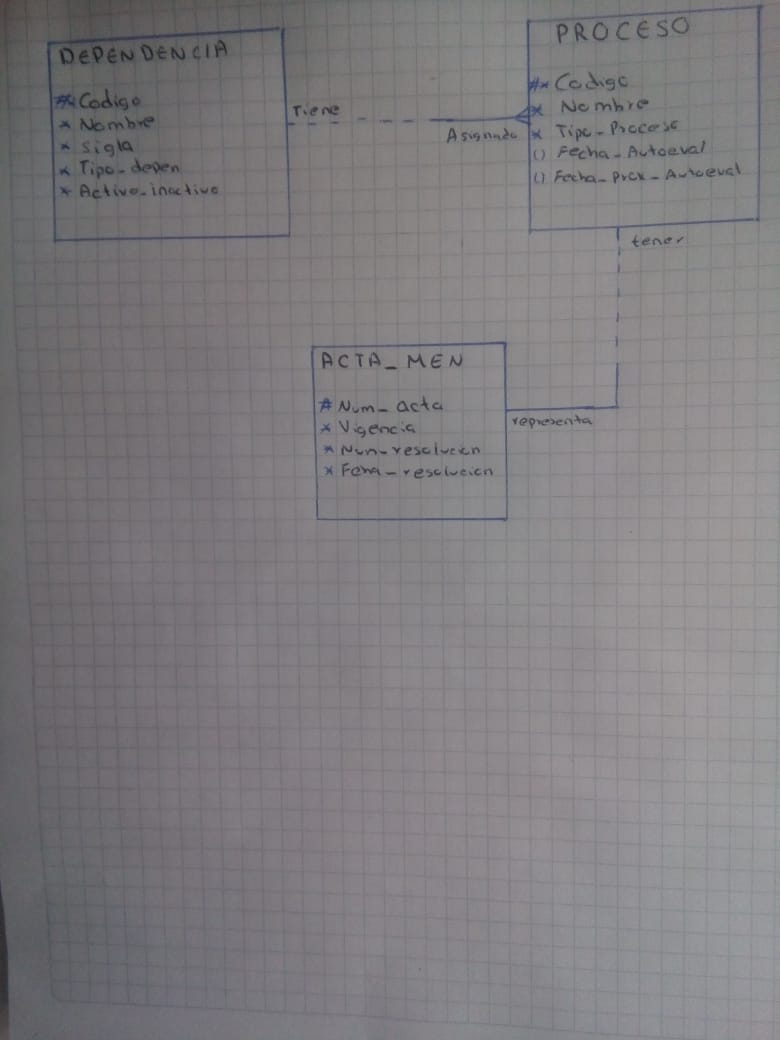 DEPENDENCIA
#* Codigo
* Nombre
* Sigla
* Tipo-depen
* Activo-inactivo
Tiene
Asignado
PROCESO
#* Codigo
* Nombre
* Tipo-Proceso
() Fecha-Autoeval
() Fecha-Prox-Autoeval
tener
ACTA_MEN
# Num-acta
* Vigencia
* Num-resolucion
* Fecha-resolucion
representa